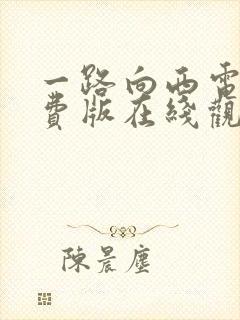 一路向西電
費版在綫觀
陳晨塵